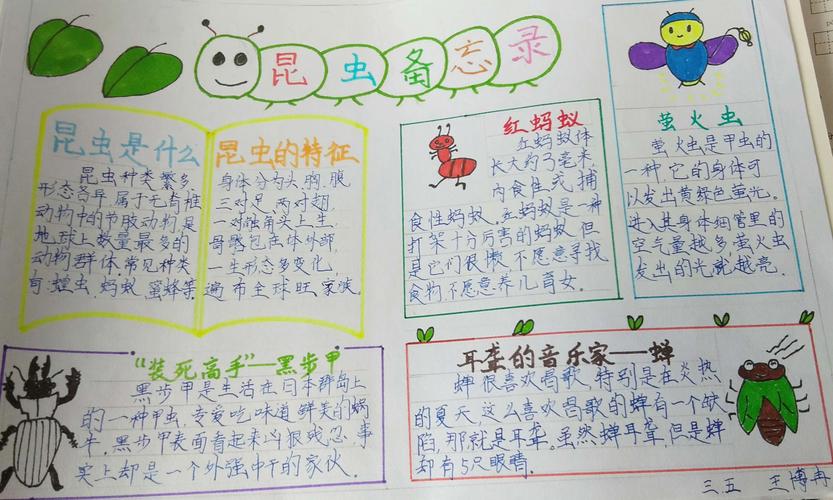 昆虫备忘录
昆虫是什么
昆虫种类繁多,
形态各异,属于无脊椎
动物中的节肢动物,是
地球上数量最多的
动物群体,常见种类
有:蝗虫、蚂蚁、蜜蜂等
昆虫的特征
身体分为头、胸、腹
三对足,两对翅,
一对触角头上生,
骨骼包在体外部,
一生形态多变化,
遍布全球旺家族。
红蚂蚁
红蚂蚁体
长大约3毫米,
肉食性或捕
食性蚂蚁。红蚂蚁是一种
打架十分厉害的蚂蚁,但
是它们很懒,不愿意寻找
食物,不愿意养儿育女。
萤火虫
萤火虫是甲虫的
一种,它的身体可
以发出黄绿色萤光。
进入其身体细管里的
空气量越多萤火虫
发出的光就越亮。
“装死高手”—黑步甲
黑步甲是生活在日本群岛上
的一种甲虫,专爱吃味道鲜美的蜗
牛。黑步甲表面看起来凶狠残忍,事
实上却是一个外强中干的家伙。
耳聋的音乐家—蝉
蝉很喜欢唱歌,特别是在炎热
的夏天,这么喜欢唱歌的蝉有一个缺
陷,那就是耳聋。虽然蝉耳聋,但是蝉
却有5只眼睛。
三、五 王博冉